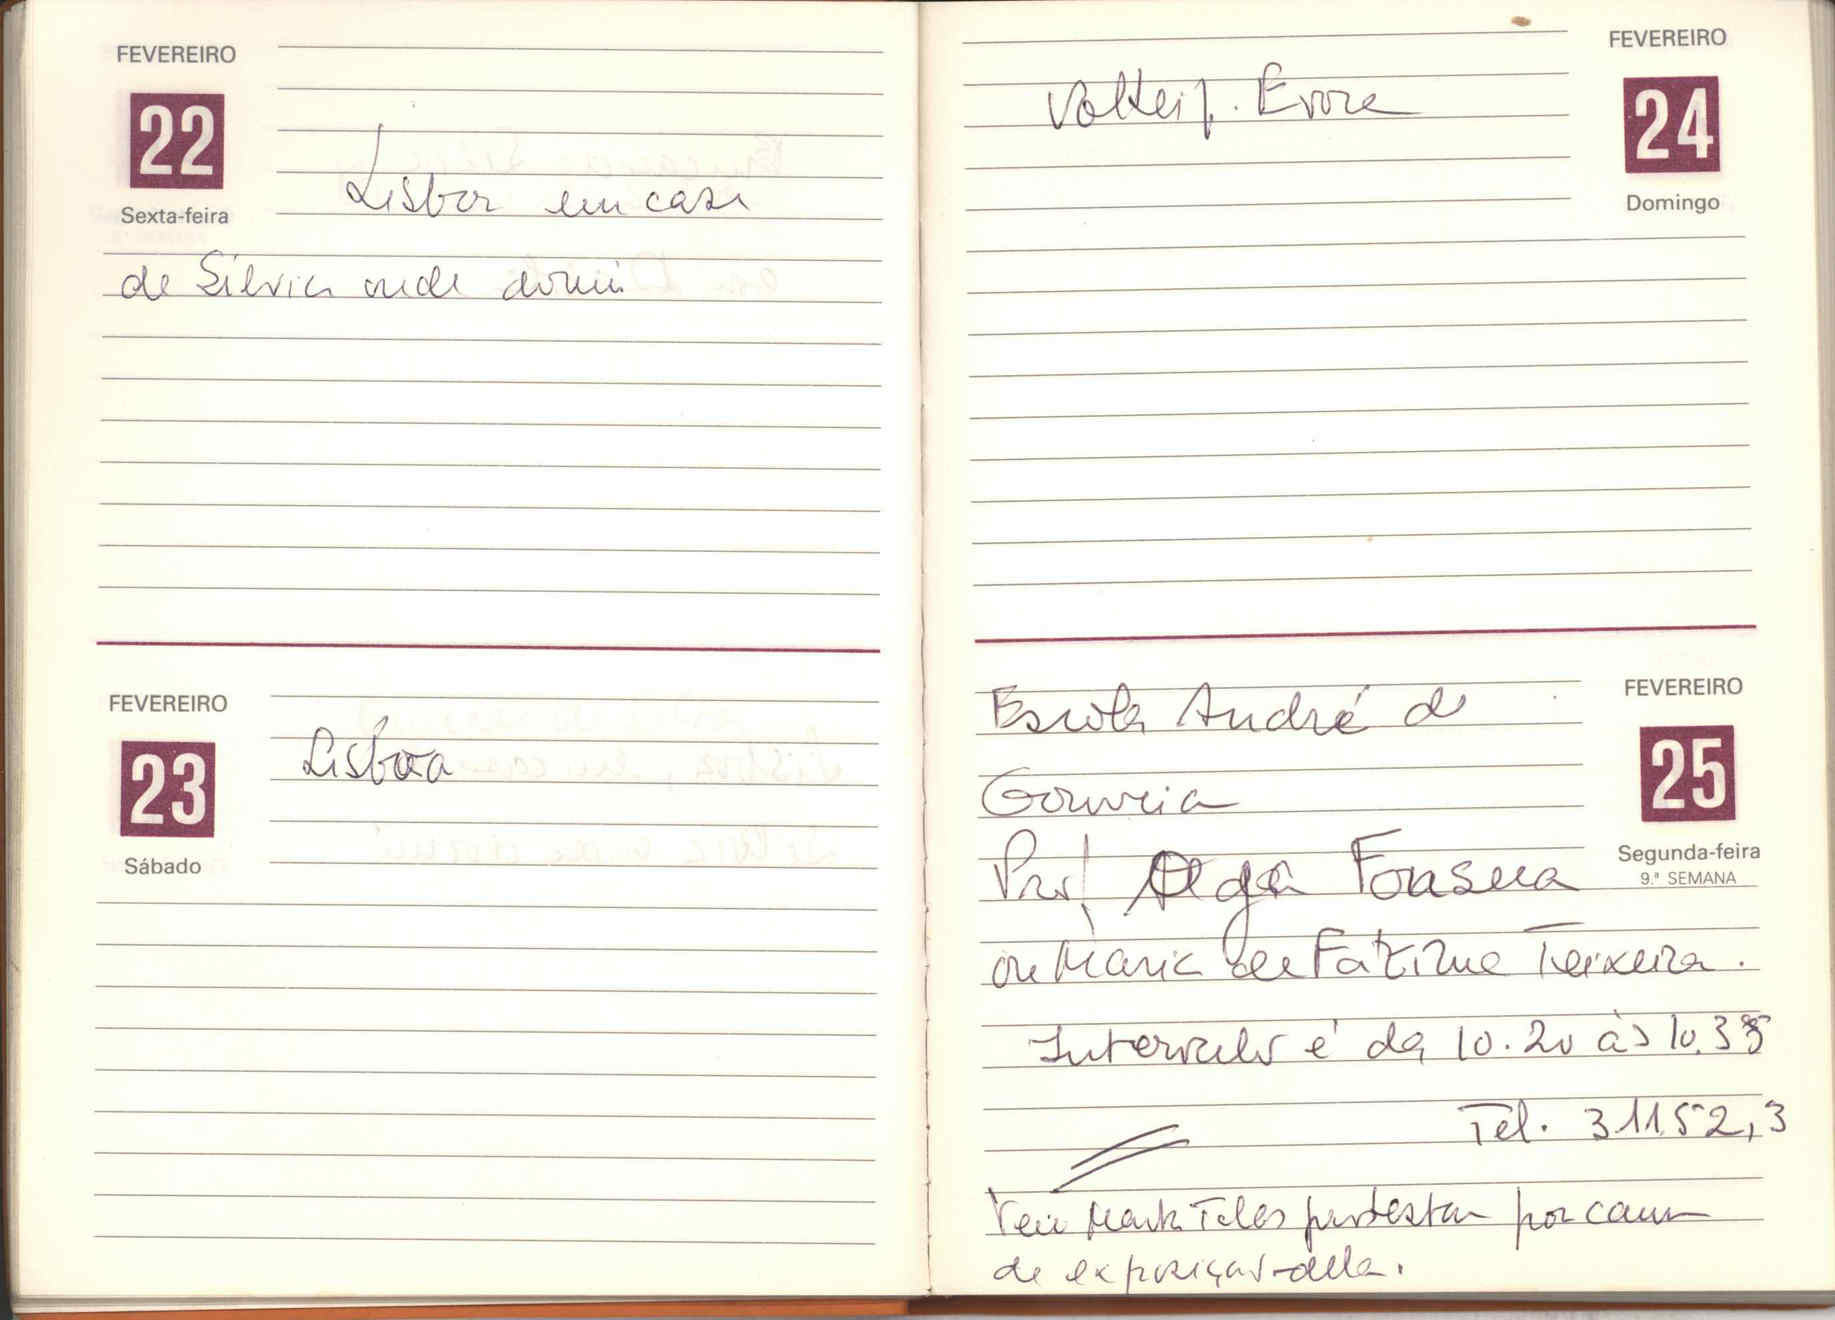 FEVEREIRO
22
Sexta-feira
Lisboa em casa
de Silvia onde dormi
FEVEREIRO
23
Sábado
Lisboa
FEVEREIRO
24
Domingo
Voltei p. Evora
FEVEREIRO
25
Segunda-feira
9.ª SEMANA
Escola André de
Gouveia
Prof Olga Fonseca
ou Maria de Fátima Teixeira.
Intervalo é da 10.20 às 10.35
Tel. 31152,3
Veio Marta Teles protestar por causa
de exposição della.